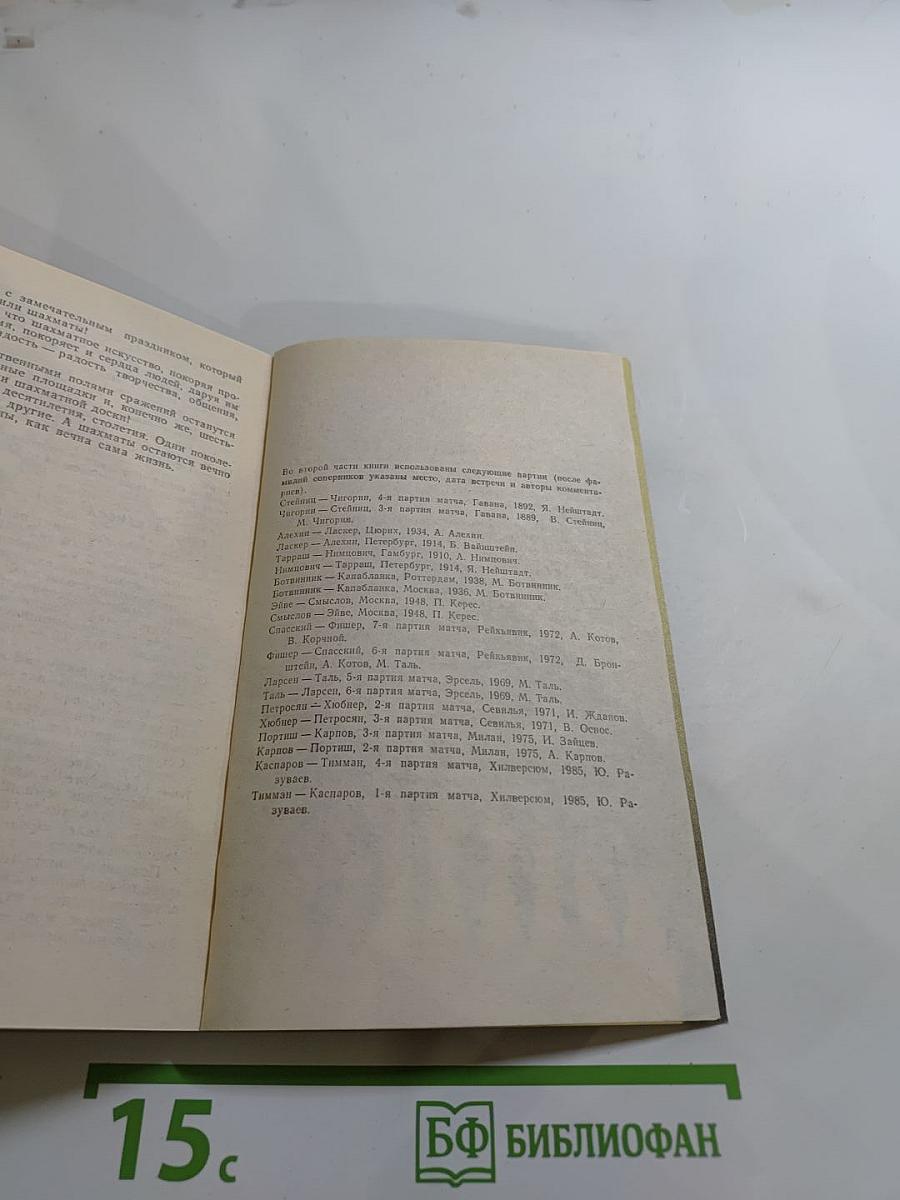 с замечательным праздником, который
или шахматы!
что шахматное искусство, покоряя про-
покоряет и сердца людей, даруя им
радость — радость творчества, общения,
ственными полями сражений останутся
ные площадки и, конечно же, шесть-
и шахматной доски!
десятилетия, столетия. Одни поколе-
другие. А шахматы остаются вечно
как вечна сама жизнь.
Во второй части книги использованы следующие партии (после фа-
милий соперников указаны место, дата встречи и авторы коммента-
риев).
Стейниц — Чигорин, 4-я партия матча, Гавана, 1892, Я. Нейштадт.
Чигорин — Стейниц, 3-я партия матча, Гавана, 1889, В. Стейниц,
М. Чигорин.
Алехин — Ласкер, Цюрих, 1934, А. Алехин.
Ласкер — Алехин, Петербург, 1914, Б. Вайнштейн.
Тарраш — Нимцович, Гамбург, 1910, А. Нимцович.
Нимцович — Тарраш, Петербург, 1914, Я. Нейштадт.
Ботвинник — Капабланка, Роттердам, 1938, М. Ботвинник.
Ботвинник — Капабланка, Москва, 1936, М. Ботвинник.
Эйве — Смыслов, Москва, 1948, П. Керес.
Смыслов — Эйве, Москва, 1948, П. Керес.
Спасский — Фишер, 7-я партия матча, Рейкьявик, 1972, А. Котов,
В. Корчной.
Фишер — Спасский, 6-я партия матча, Рейкьявик, 1972, Д. Брон-
штейн, А. Котов, М. Таль.
Ларсен — Таль, 5-я партия матча, Эрсель, 1969, М. Таль.
Таль — Ларсен, 6-я партия матча, Эрсель, 1969, М. Таль.
Петросян — Хюбнер, 2-я партия матча, Севилья, 1971, И. Жданов.
Хюбнер — Петросян, 3-я партия матча, Севилья, 1971, В. Осnос.
Портиш — Карпов, 3-я партия матча, Милан, 1975, И. Зайцев.
Карпов — Портиш, 2-я партия матча, Милан, 1975, А. Карпов.
Каспаров — Тимман, 4-я партия матча, Хилверсюм, 1985, Ю. Ра-
зуваев.
Тимман — Каспаров, 1-я партия матча, Хилверсюм, 1985, Ю. Ра-
зуваев.
15 с
БФ БИБЛИОФАН